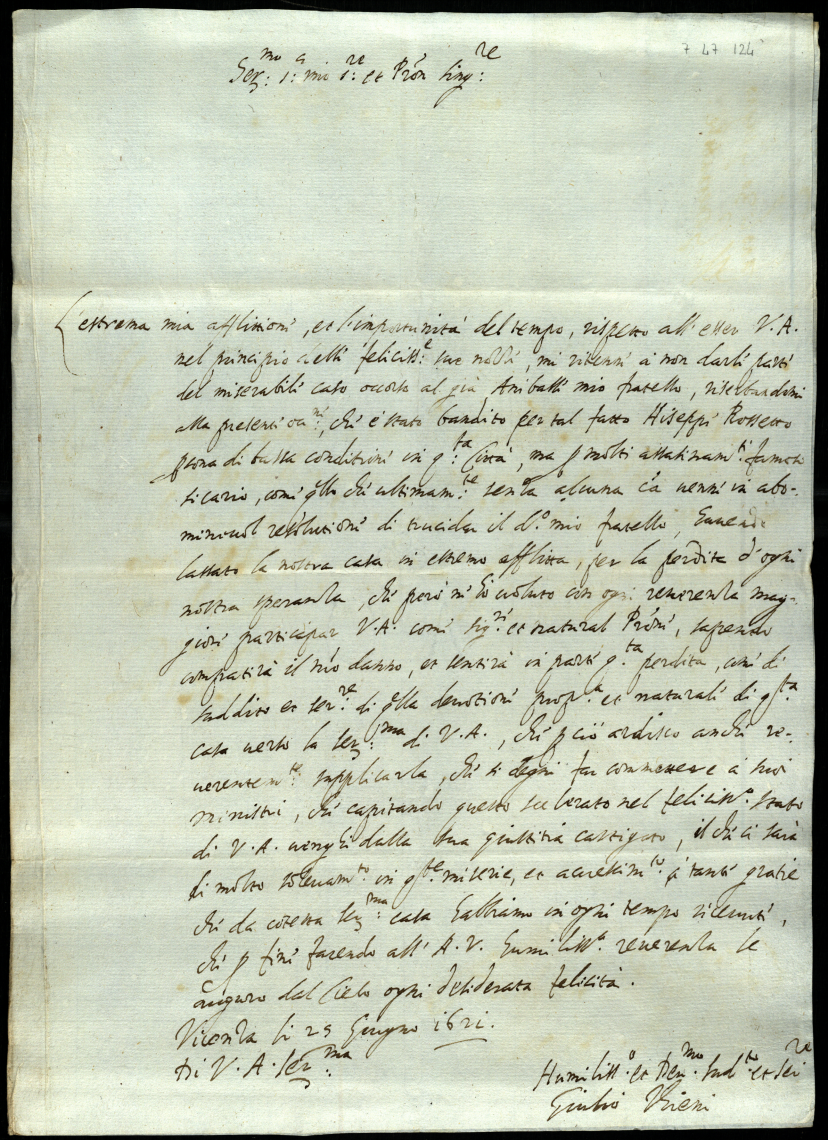 7 47 124
Ser:mo S: mio S:re et Pròn sing:re
L'estrema mia afflitione, et l'importunità del tempo, rispetto all'esser V.A.
nel principio delle feliciss:e sue nozze, mi ritenni à non darli parte
del miserabile caso occorso al già Anibale mio fratello, riserbandomi
alla presente, che è stato bandito per tal fatto Hiseppe Rossetto
psona di bassa conditione in q:ta Città, ma p molti assasinam:ti famoso
sicario, come qllo che ultimam:te senza alcuna ca venne in abo-
minevol resolutione di trucidar il d:o mio fratello, havendo
lassato la nostra casa in estremo afflitta, per la perdita d'ogni
nostra speranza, che però ne hò voluto con ogni reverenza mag-
giore participar V.A. come sig:re et natural Pròne, sapendo
compatirà il mio danno, et sentirà in parte q:ta perdita, come di
suddito et ser:re di qlla devotione prop:a et naturale di q:sta
casa verso la Ser:ma di V.A., che p ciò ardisco anche re-
verentem:te supplicarla, che si degni far commettere à suoi
ministri, che capitando questo scelerato nel feliciss:o stato
di V.A. venghi dalla sua giustitia castigato, il che ci sarà
di molto solevam:to in q:ste miserie, et accressim:to à tante gratie
che da cotesta Ser:ma casa habbiamo in ogni tempo ricevute,
che p fine facendo all'A.V. humiliss:a reverenza le
auguro dal Cielo ogni desiderata felicità.
Vicenza li 25 Giugno 1621.
Di V.A. Ser:ma
Humiliss:o et Dev:mo Sud:to et Ser:re
Giulio